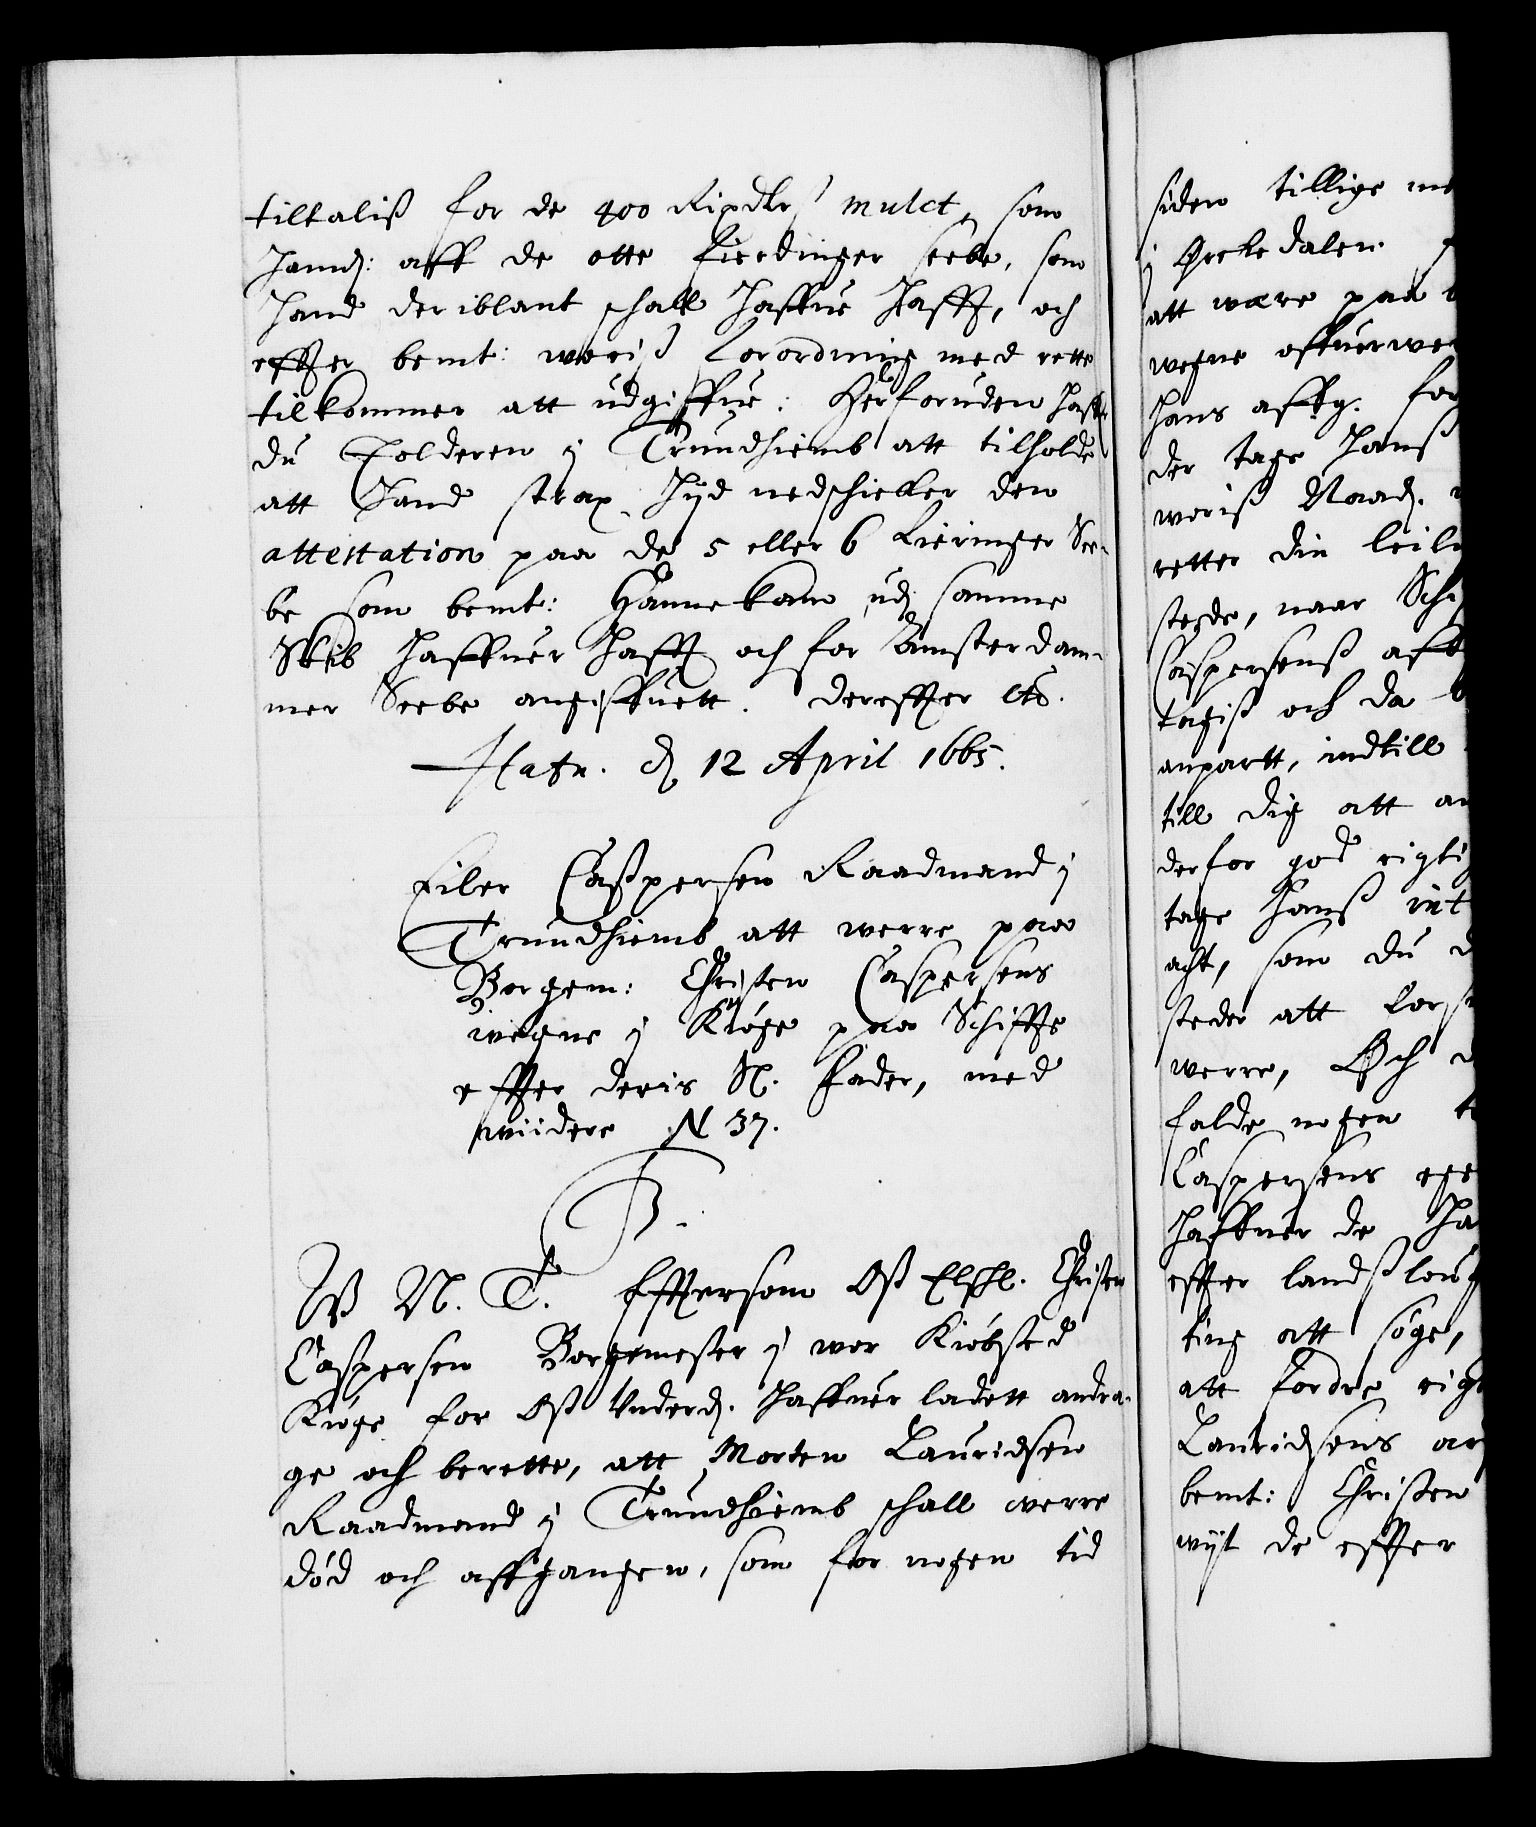 tiltaliß for de 400 Rixdlrs mulct, som
hand: aff de otte fierdinger seebe, som
hand der iblant schall haffue hafft, och
effter bemt: woriß forordning med rette
tilkommer att udgiffue: Herforuden haffr
du Tolderen j Trundhiemb att tilholde
att hand strax hid nedschicker den
attestation paa de 5 eller 6 fieringer See-
be som bemt: Hannekam udj samme
Skib haffuer hafft och for Amsterdam-
mer Seebe angiffuett. Dereffter etc.
Hafn. d 12 April 1665.
Eiler Casspersen Raadmand j
Trundhiemb att werre paa
Borgem: Christen Caspersens
wegne j Kiøge paa Schiffte
effter deris S. fader, med
wiidere N 37.
W N. T. Efftersom Oß Elschl. Christen
Caspersen Borgemester j wor Kiøbsted
Kiøge for Oß Underd. haffuer ladett andra-
ge och berette, att Morten Lauridsen
Raadmand j Trundhiemb schall werre
død och affgangen, som for nogen tid
siden tillige
j Orckedalen
att være paa
wegne offuerwe
hans affg. for
der tage hanß
woriß Naad.
retter din leil
stede, naar Sch
Caspersenß aff
tagiß och da
anpartt, indtill
till dig att an
derfor god rigti
tage hanß int
acht, som du d
steder att fors
werre, Och d
falde nogen
Caspersens ege
haffuer de ha
effter landßlou
ting att søge,
att fordre rig
Lauridsens ar
bemt: Christen
wiit de effter